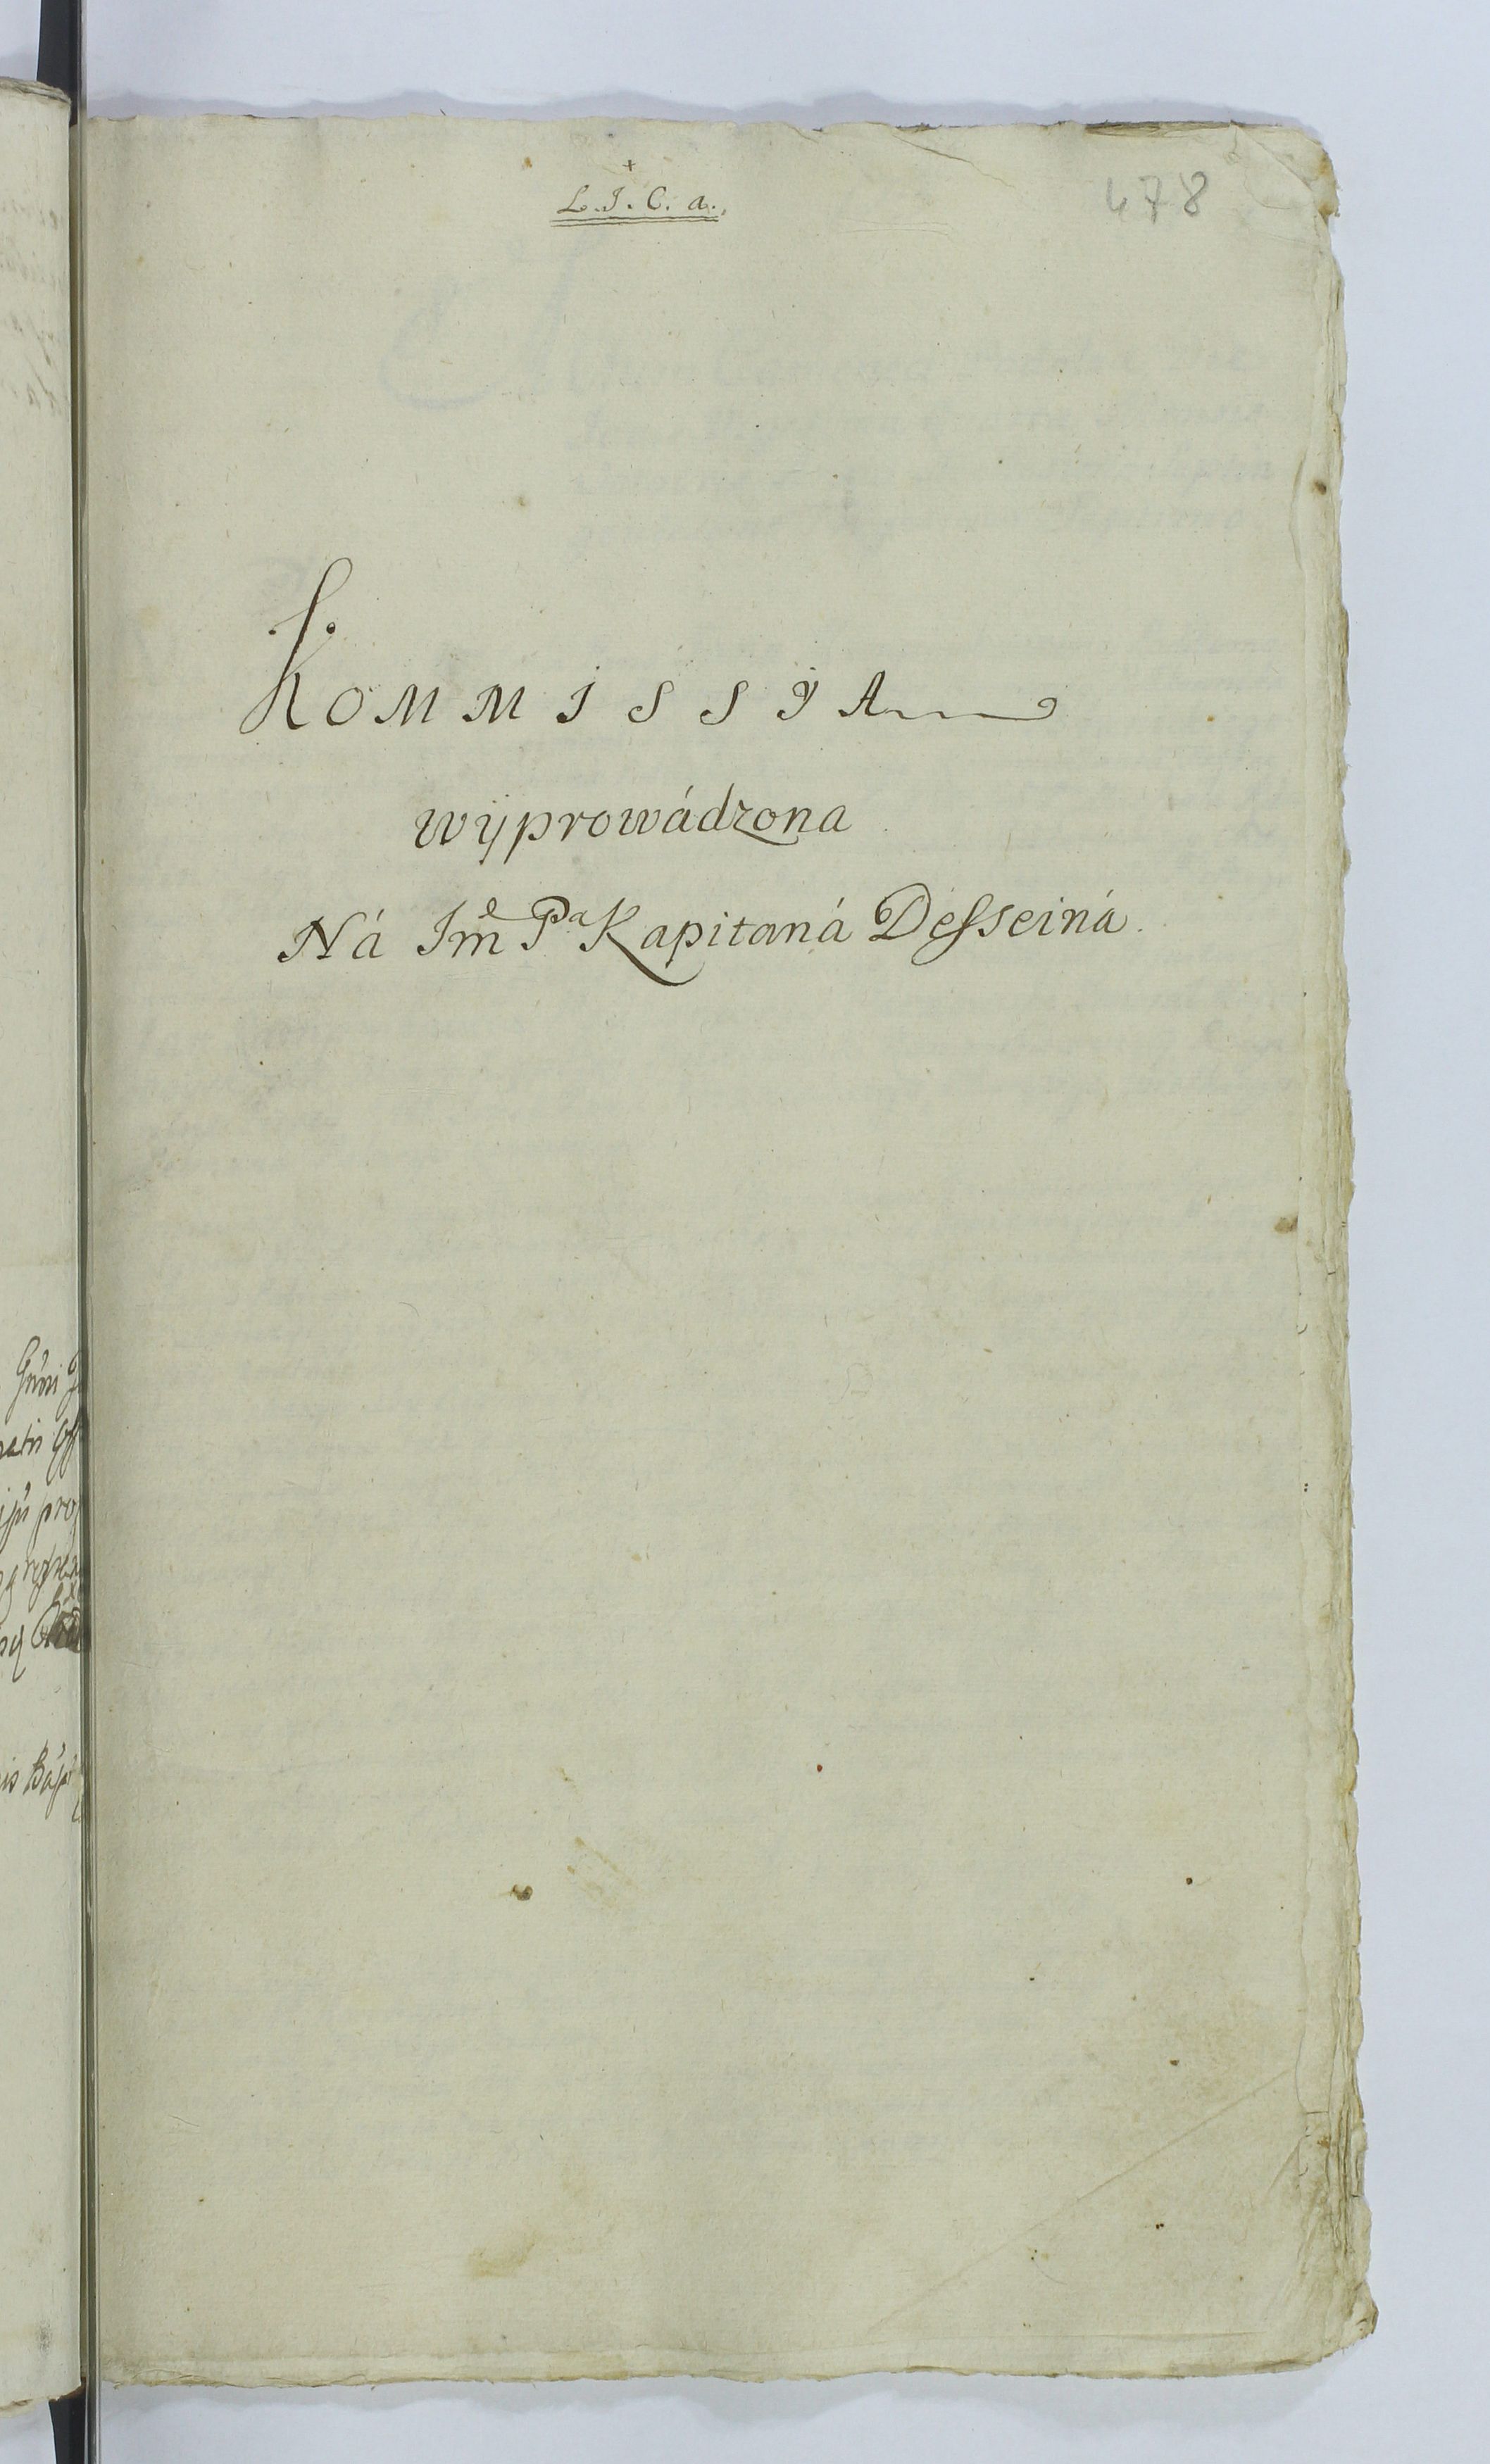 +
L. J. C. a.
478
KOMMISSYA
wÿprowádzona
Ná Jmę Pa Kapitaná Desseiná.